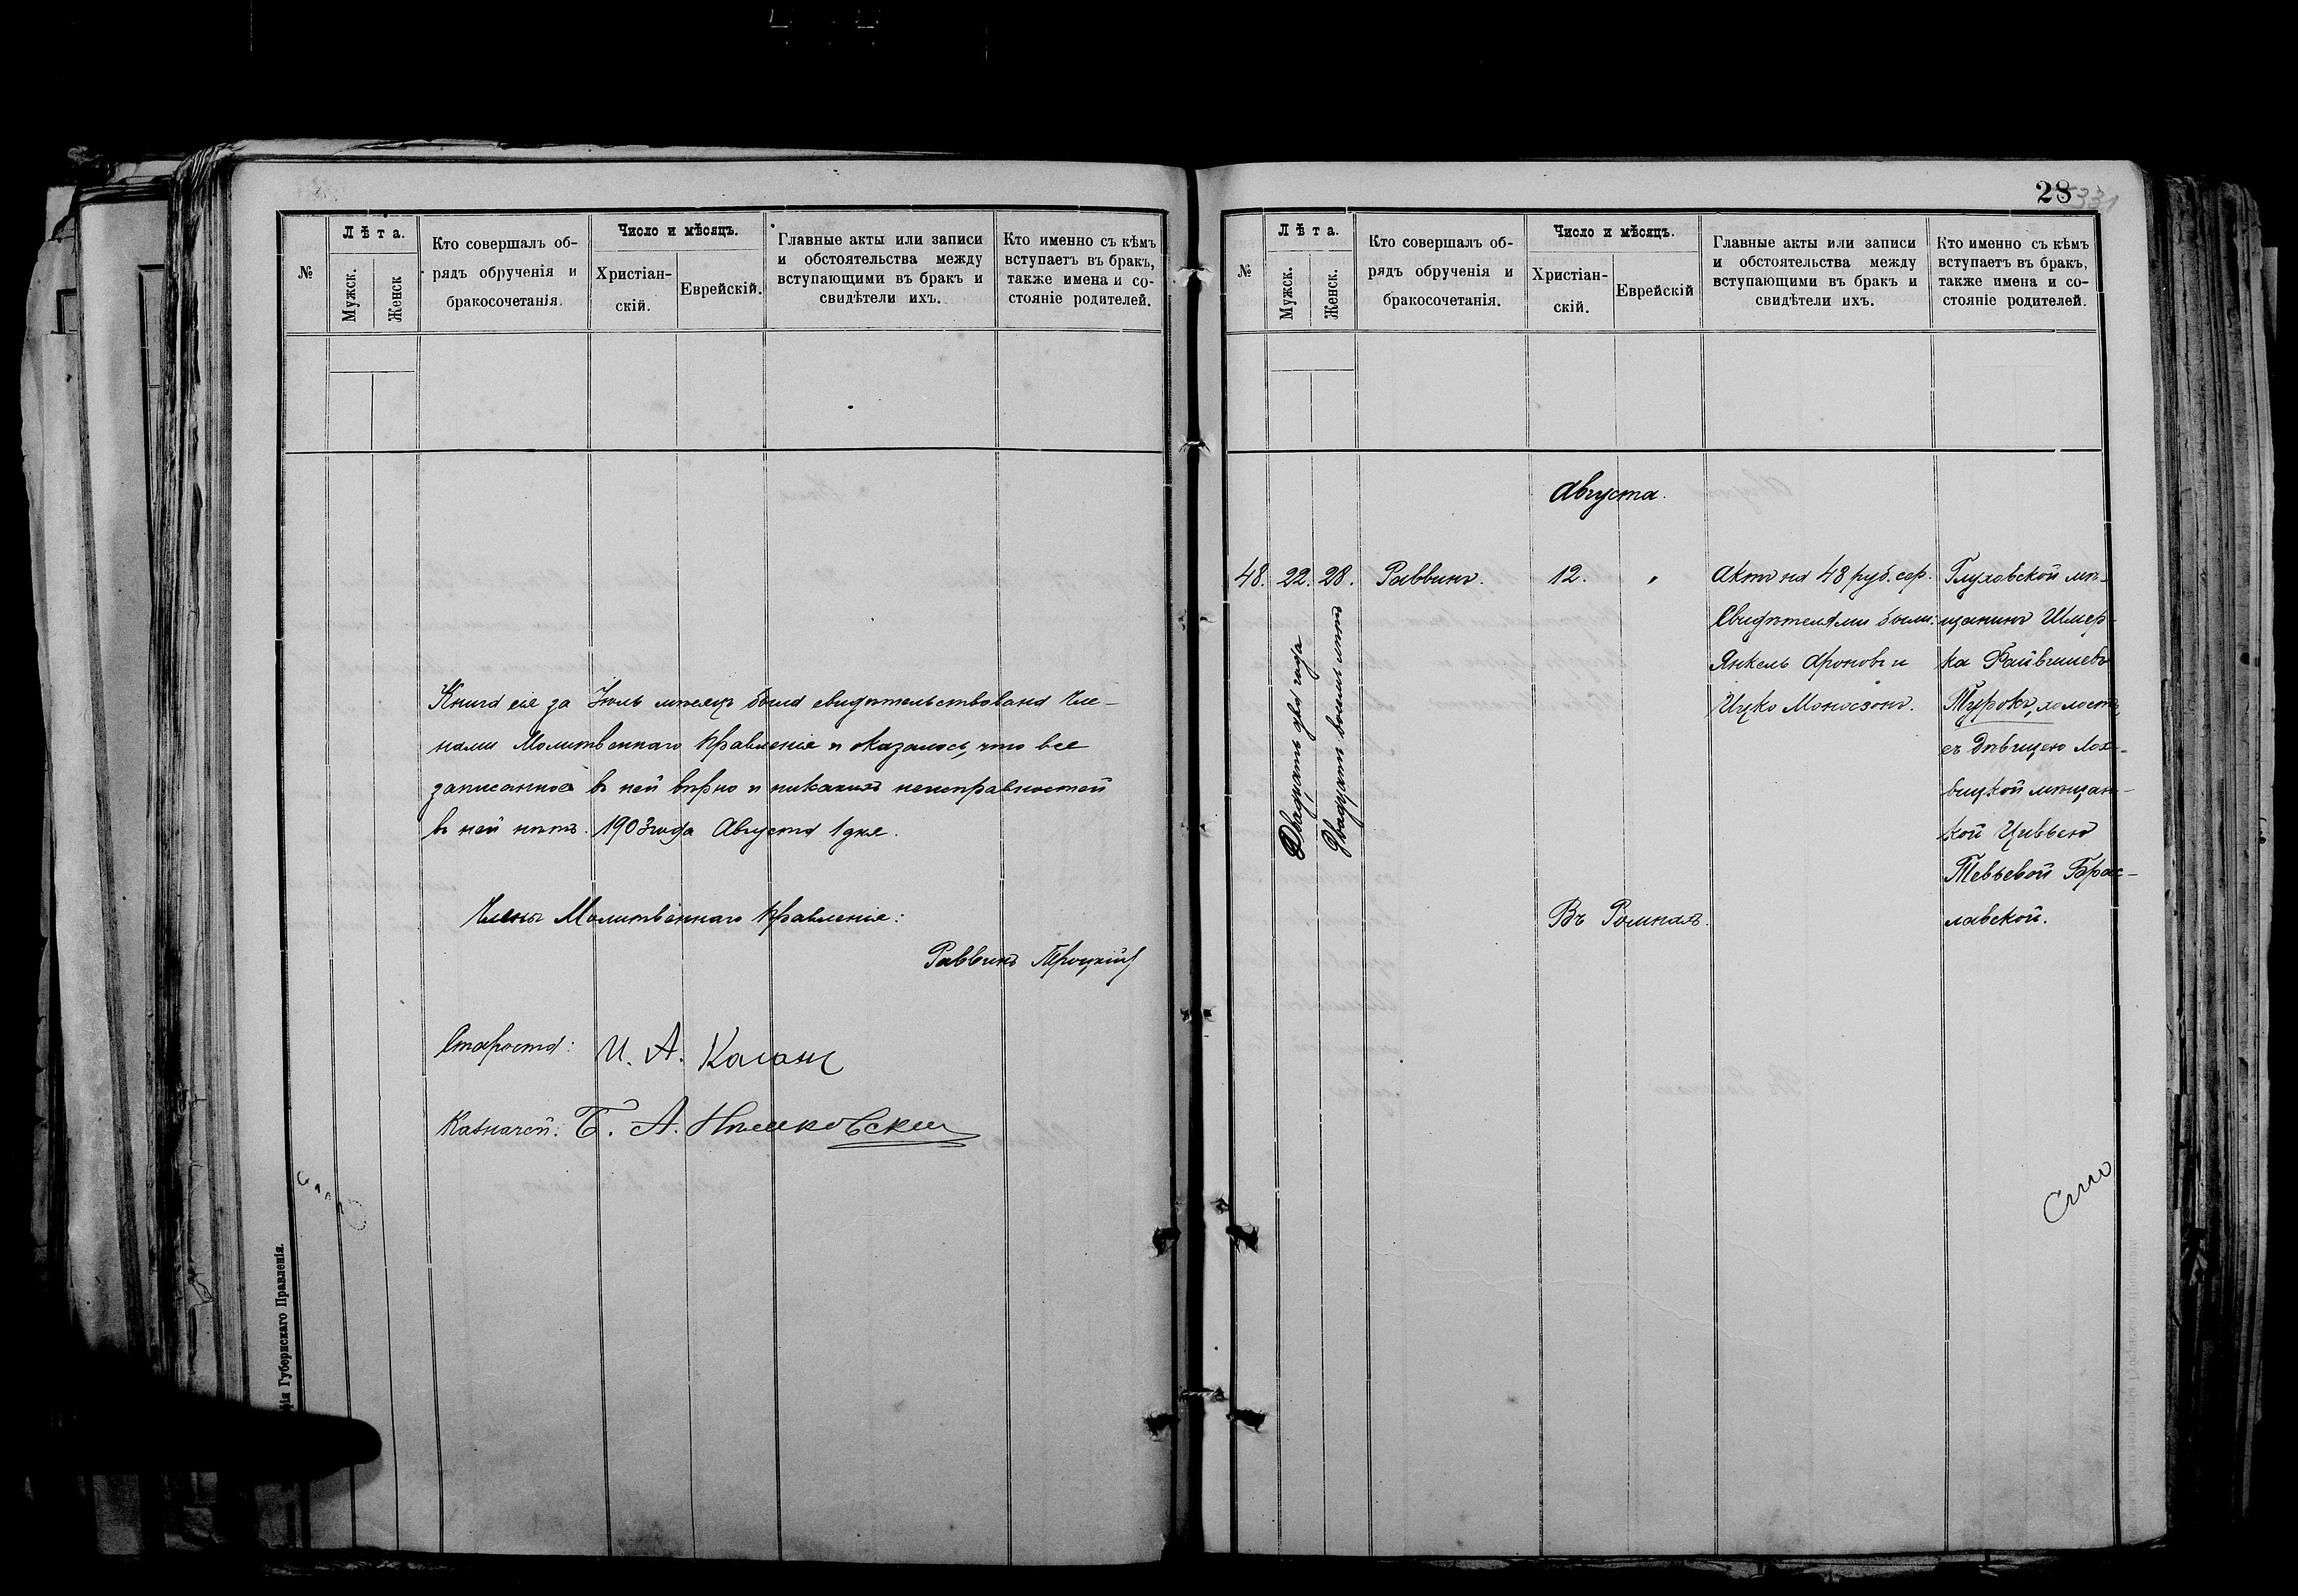 №
Лѣта.
Мужск.
Женск
Кто совершалъ об-
рядъ обрученія и
бракосочетанія.
Число и мѣсяцъ.
Христіан-
скій.
Еврейскій.
Главные акты или записи
и обстоятельства между
вступающими въ бракъ и
свидѣтели ихъ.
Кто именно съ кѣмъ
вступаетъ въ бракъ,
также имена и со-
стояніе родителей.
Книга сія за Іюль мѣсяцъ была свидѣтельствована Чле-
нами Молитвеннаго Правленія и оказалось, что все
записанное въ ней вѣрно и никакихъ неисправностей
въ ней нѣтъ. 1903 года Августа 1 дня.
Члены Молитвеннаго Правленія:
Раввинъ Троцкій
Староста: И. А. Каганъ
Казначей: Б. А.
Губернскаго Правленія.
28
331
№
Лѣта.
Мужск.
Женск.
Кто совершалъ об-
рядъ обрученія и
бракосочетанія.
Число и мѣсяцъ.
Христіан-
скій.
Еврейскій
Главные акты или записи
и обстоятельства между
вступающими въ бракъ и
свидѣтели ихъ.
Кто именно съ кѣмъ
вступаетъ въ бракъ,
также имена и со-
стояніе родителей.
Августа.
48.
22.
Двадцать два года
28.
Двадцать восемь лѣтъ
Раввинъ.
12.
"
Въ Ромнахъ.
Актъ на 48 руб. сер.
Свидѣтелями были:
Янкель Ароновъ и
Ицко Моносзонъ.
Глуховской мѣ-
щанинъ Шмер-
ка Файвишевъ
Турокъ, холостъ,
съ дѣвицею Лох-
вицкой мѣщан-
кой Цивьею
Тевьевой Брас-
лавской.